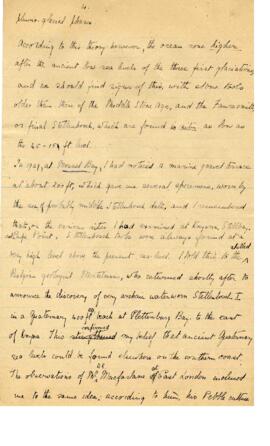 4.
fluvio-glacial phases
According to this theory however, the ocean rose higher
after the ancient low sea levels of the three first glaciations
and we should find signs of this, with stone tools
older than those of the Middle Stone Age, and the Fauresmith
or final Stellenbosch, which are found as low as
the 45 - 15 ft level.
In 1929, at Mossel Bay, I had noticed a marine gravel terrace
at about 200 ft, which gave me several specimens, worn by
the sea, of probably middle Stellenbosch date, and I remembered
that, on the various sites I had examined at Knysna, Stillbay,
Cape Point, Stellenbosch tools were always found at a
very high level above the present sea level. I told this to the skilled
Belgian geologist Mortelmans, who returned shortly after to
announce the discovery of very archaic waterworn Stellenbosch I
in a Quaternary 200 ft beach at Plettenberg Bay to the east
of Knysna. This strengthened confirmed my belief that ancient Quaternary
sea levels could be found elsewhere on the southern coast.
The observations of Mr Macfarlane at East London inclined me
to the same idea; according to him, his Pebble culture